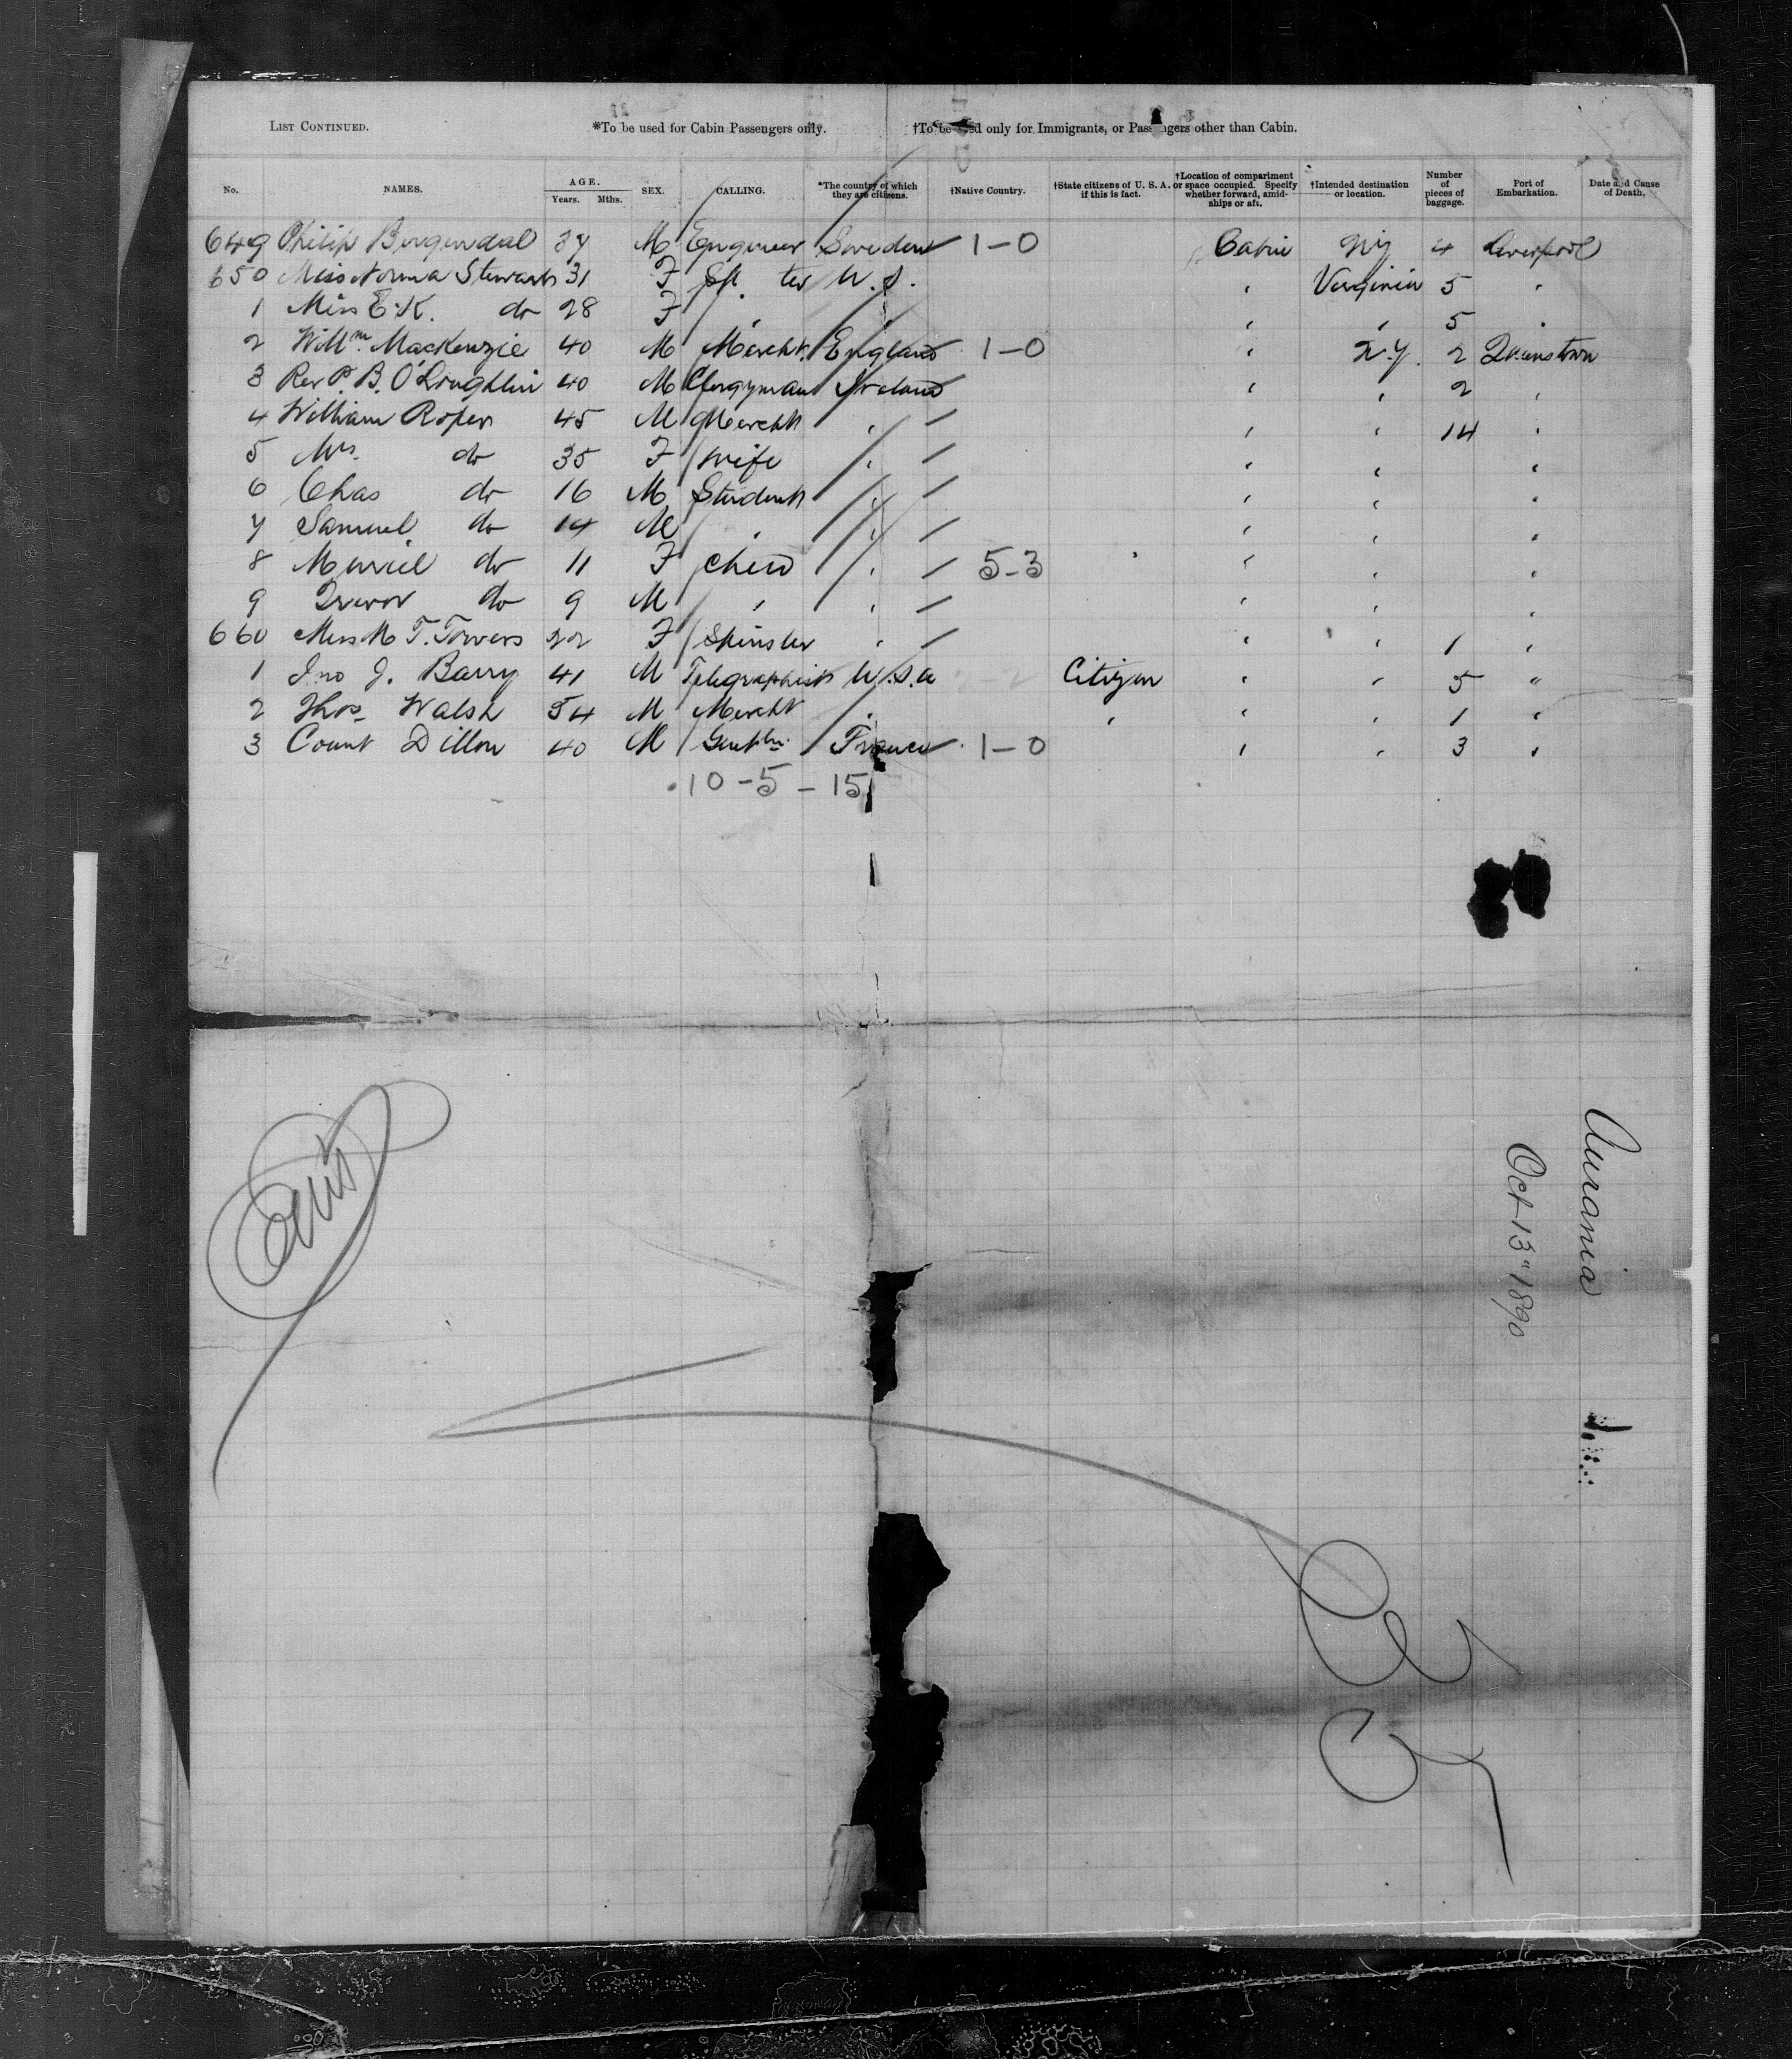 LIST CONTINUED. *To be used for Cabin Passengers only. †To be used only for Immigrants, or Passengers other than Cabin.
No. NAMES. AGE. Years. Mths. SEX. CALLING. *The country of which they are citizens. †Native Country. †State citizens of U. S. A. if this is fact. †Location of compartment or space occupied. Specify whether forward, amidships or aft. †Intended destination or location. Number of pieces of baggage. Port of Embarkation. Date and Cause of Death.
649 Philip Bergendal 37 M Engineer Sweden 1-0 Cabin NY 4 Liverpool
650 Miss Norma Stewart 31 F Sp ter U.S. " Virginia 5 "
1 Miss E.K. do 28 F " " " 5 "
2 Willm. MacKenzie 40 M Mercht. England 1-0 " N.Y. 2 Queenstown
3 Rev P. B. O'Loughlin 40 M Clergyman Ireland " " 2 "
4 William Roper 45 M Mercht " / " " 14 "
5 Mrs. do 35 F wife " / " " "
6 Chas do 16 M Student " / " " "
7 Samuel do 14 M " " / " " "
8 Muriel do 11 F Child " / 5-3 " " "
9 Trevor do 9 M " " / " " "
660 Miss M T. Towers 22 F Spinster " / " " 1 "
1 Jno J. Barry 41 M Telegraphist U.S.a Citizen " " 5 "
2 Thos. Walsh 54 M Mercht " " " " 1 "
3 Count Dillon 40 M Gentln. France 1-0 " " 3 "
10-5-15
Aurania
Oct-13" 1890